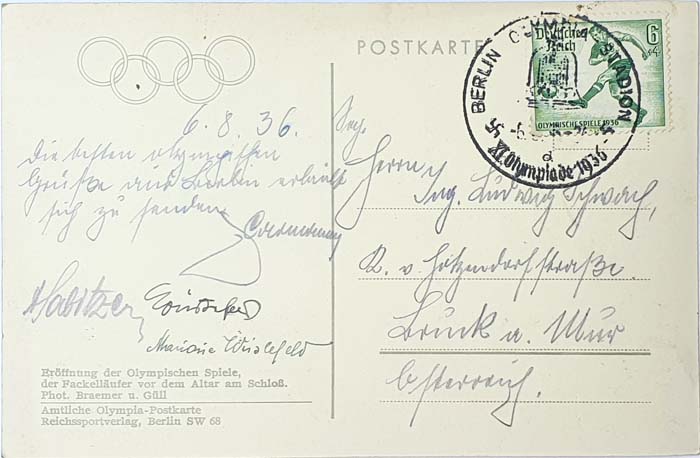 POSTKARTE
6.8.36.
Die besten olympischen
Grüße aus Berlin erlaubt
sich zu senden
A Sabitzer
Marianne
Eröffnung der Olympischen Spiele,
der Fackelläufer vor dem Altar am Schloß.
Phot. Braemer u. Güll
Amtliche Olympia-Postkarte
Reichssportverlag, Berlin SW 68
Deutsches
Reich
6
+4
OLYMPISCHE SPIELE 1936
BERLIN OLYMPIA-STADION
a
XI. Olympiade 1936
Herrn
Ing. Ludwig Schwach,
K. v. Hötzendorfstraße
Bruck a. Mur
Österreich.